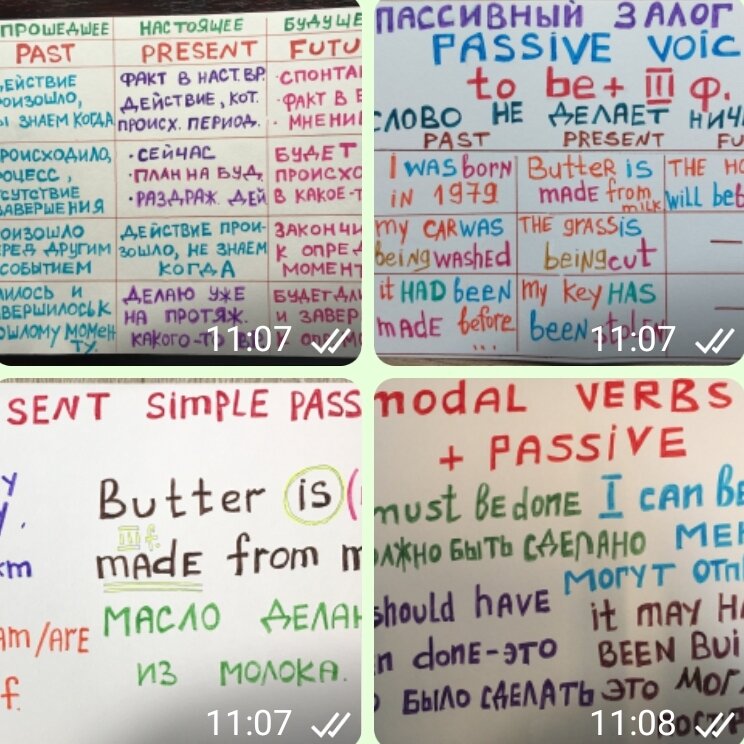 ПРОШЕДШЕЕ НАСТОЯЩЕЕ БУДУЩЕ
PAST PRESENT FUTU
ДЕЙСТВИЕ
ОИЗОШЛО,
Ы ЗНАЕМ КОГДА
ФАКТ В НАСТ. ВР.
ДЕЙСТВИЕ, КОТ.
ПРОИСХ. ПЕРИОД.
·СПОНТА
·ФАКТ В Б
·МНЕНИ
РОИСХОДИЛО,
ОЦЕСС,
СУТСТВИЕ
ЗАВЕРШЕНИЯ
·СЕЙЧАС
·ПЛАН НА БУД.
·РАЗДРАЖ. ДЕЙ
БУДЕТ
ПРОИСХО
В КАКОЕ-Т
ОИЗОШЛО
РЕД ДРУГИМ
СОБЫТИЕМ
ДЕЙСТВИЕ ПРОИ-
ЗОШЛО, НЕ ЗНАЕМ
КОГДА
ЗАКОНЧИ
К ОПРЕД
МОМЕНТ
ИЛОСЬ И
ВЕРШИЛОСЬ К
ОШЛОМУ МОМЕН
ТУ.
ДЕЛАЮ УЖЕ
НА ПРОТЯЖ.
КАКОГО-ТО
БУДЕТ ДЛ
И ЗАВЕР
11:07
ПАССИВНЫЙ ЗАЛОГ
PASSIVE VOIC
to be + III ф.
СЛОВО НЕ ДЕЛАЕТ НИЧ
PAST PRESENT FU
I WAS born
iN 1979
Butter is
made from
milk
THE HO
will be b
my CAR WAS
being washed
THE grass is
being cut
—
it HAD been
made before
...
my key HAS
been stolen
11:07
SENT SIMPLE PASS
Butter is (
III f.
made from m
МАСЛО ДЕЛАЮ
ИЗ МОЛОКА.
У
km
am/are
f.
11:07
modAL VERBS
+ PASSIVE
must BE done
ЛЖНО БЫТЬ СДЕЛАНО
I can BE
МЕН
МОГУТ ОТП
should have
n done-это
БЫЛО СДЕЛАТЬ
it MAY HA
BEEN Bui
ЭТО МОГ
11:08